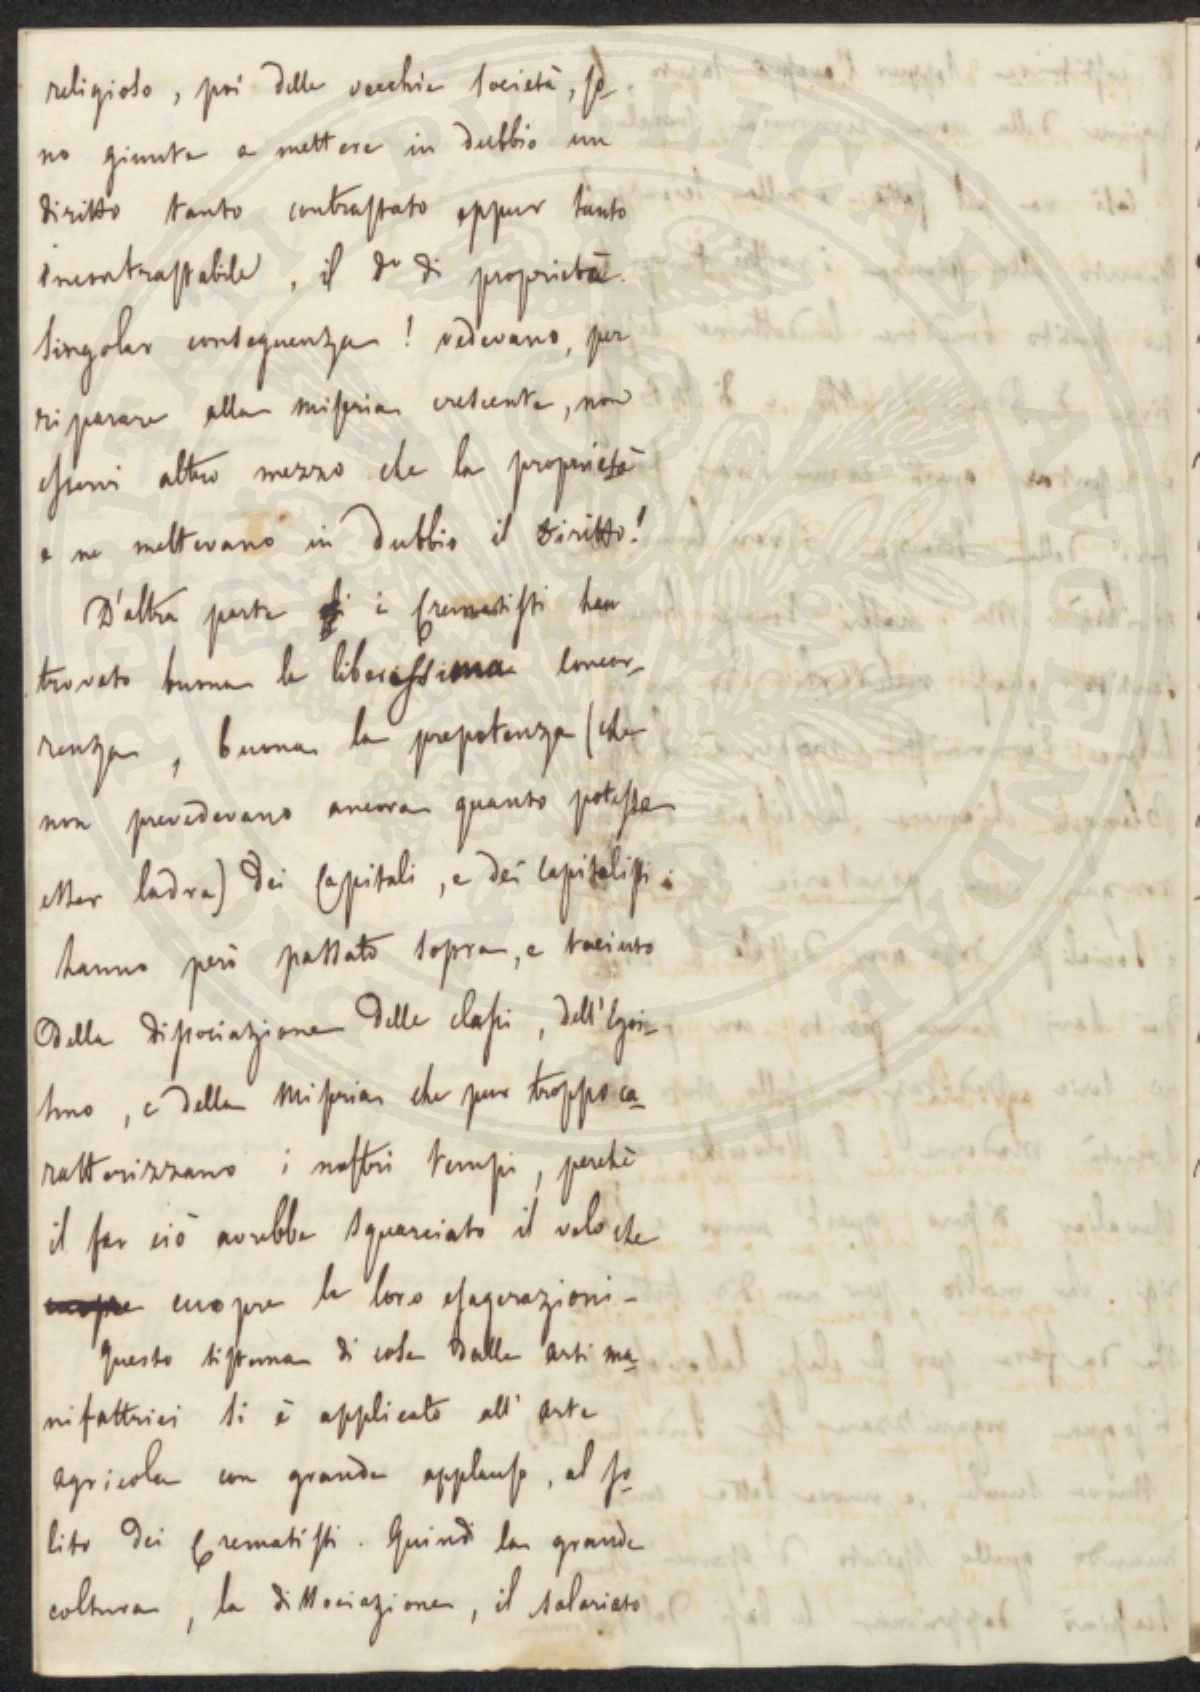 religioso, poi delle vecchie società, so-
no giunte a mettere in dubbio un
diritto tanto contrastato eppur tanto
incontrastabile, il do di proprietà.
Singolar conseguenza! vedevano, per
riparare alla miseria crescente, non
esservi altro mezzo che la proprietà
e ne mettevano in dubbio il diritto!
D'altra parte i Crematisti han
trovato buona la liberissima concor-
renza, buona la prepotenza (che
non prevedevano ancora quanto potesse
esser ladra) dei Capitali, e dei Capitalisti:
hanno però passato sopra, e taciuto
della dissociazione delle classi, dell'Egoi-
smo, e della miseria che pur troppo ca-
ratterizzano i nostri tempi, perchè
il far ciò avrebbe squarciato il velo che
cuopre cuopre le loro esagerazioni -
Questo sistema di cose dalle arti ma-
nifattrici si è applicato all'arte
agricola con grande applauso, al so-
lito dei Crematisti. Quindi la grande
coltura, la dissociazione, il salariato